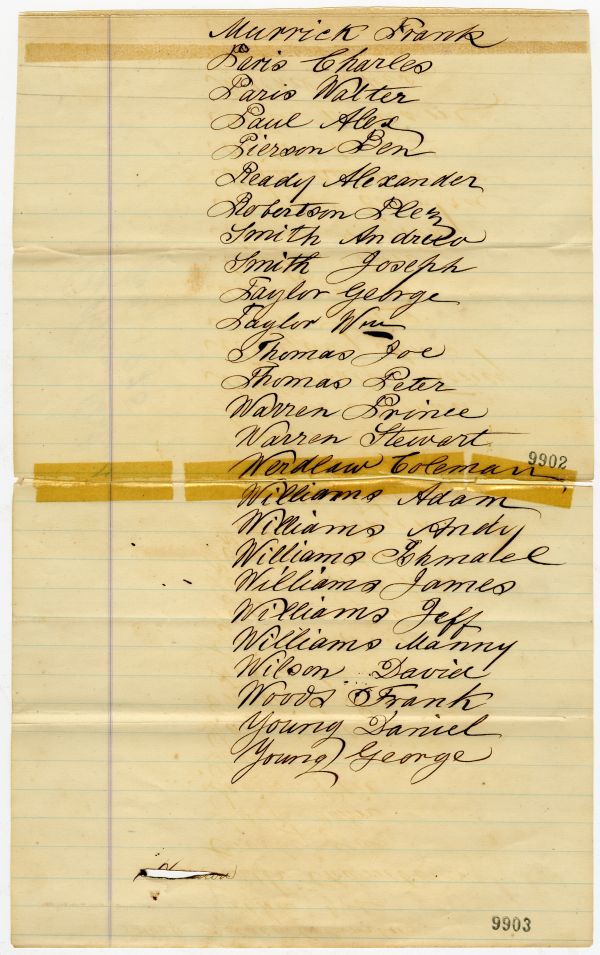 Murrick Frank
Paris Charles
Paris Walter
Paul Alex
Pierson Ben
Ready Alexander
Robertson Plez
Smith Andrew
Smith Joseph
Taylor George
Taylor Wm
Thomas Joe
Thomas Peter
Warren Prince
Warren Stewart
Werdlaw Coleman
9902
Williams Adam
Williams Andy
Williams Ishmael
Williams James
Williams Jeff
Williams Manny
Wilson David
Woods Frank
Young Daniel
Young George
9903